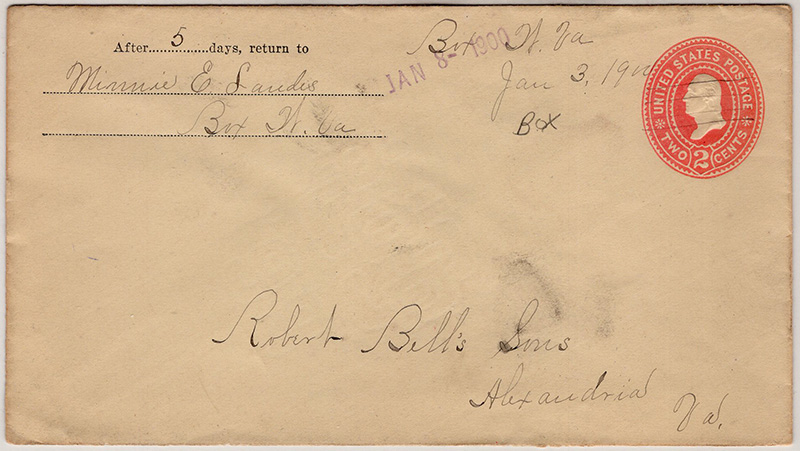 After 5 days, return to
Minnie E Landis
Box W. Va
JAN 8- 1900
Box W. Va
Jan 3, 190
Box
UNITED STATES POSTAGE
TWO 2 CENTS
Robert Bell's Sons
Alexandria
Va.